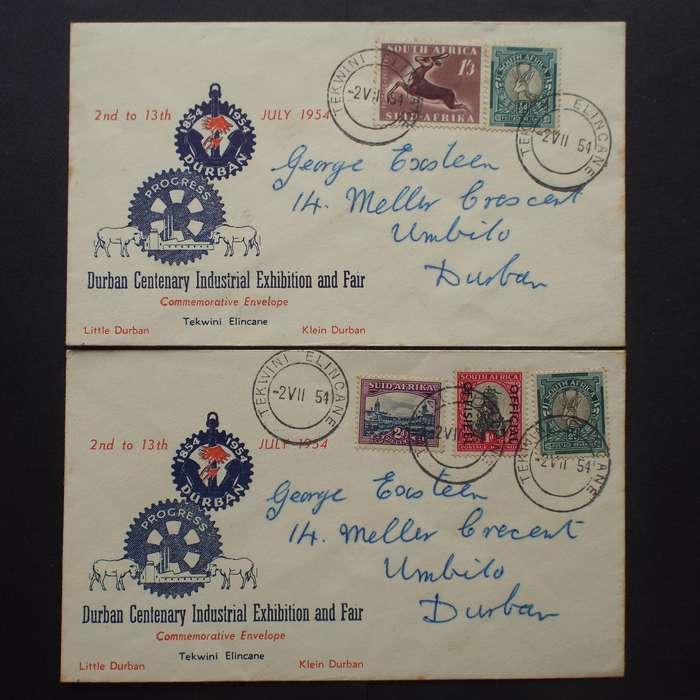 SOUTH AFRICA
1'3
SUID-AFRIKA
SOUTH AFRICA
TEKWINI ELINCANE
-2 VII 54
TEKWINI ELINCANE
-2 VII 54
2nd to 13th JULY 1954
1854 1954
DURBAN
PROGRESS
George Exsteen
14. Meller Crescent
Umbilo
Durban
Durban Centenary Industrial Exhibition and Fair
Commemorative Envelope
Tekwini Elincane
Little Durban Klein Durban
TEKWINI ELINCANE
-2 VII 54
SUID-AFRIKA
2d
SOUTH AFRICA
OFFICIAL
OFFISIEEL
1D
SOUTH AFRICA
-2 VII
TEKWINI
-2 VII 54
2nd to 13th JULY 1954
1854 1954
DURBAN
PROGRESS
George Exsteen
14. Meller Crecent
Umbilo
Durban
Durban Centenary Industrial Exhibition and Fair
Commemorative Envelope
Tekwini Elincane
Little Durban Klein Durban